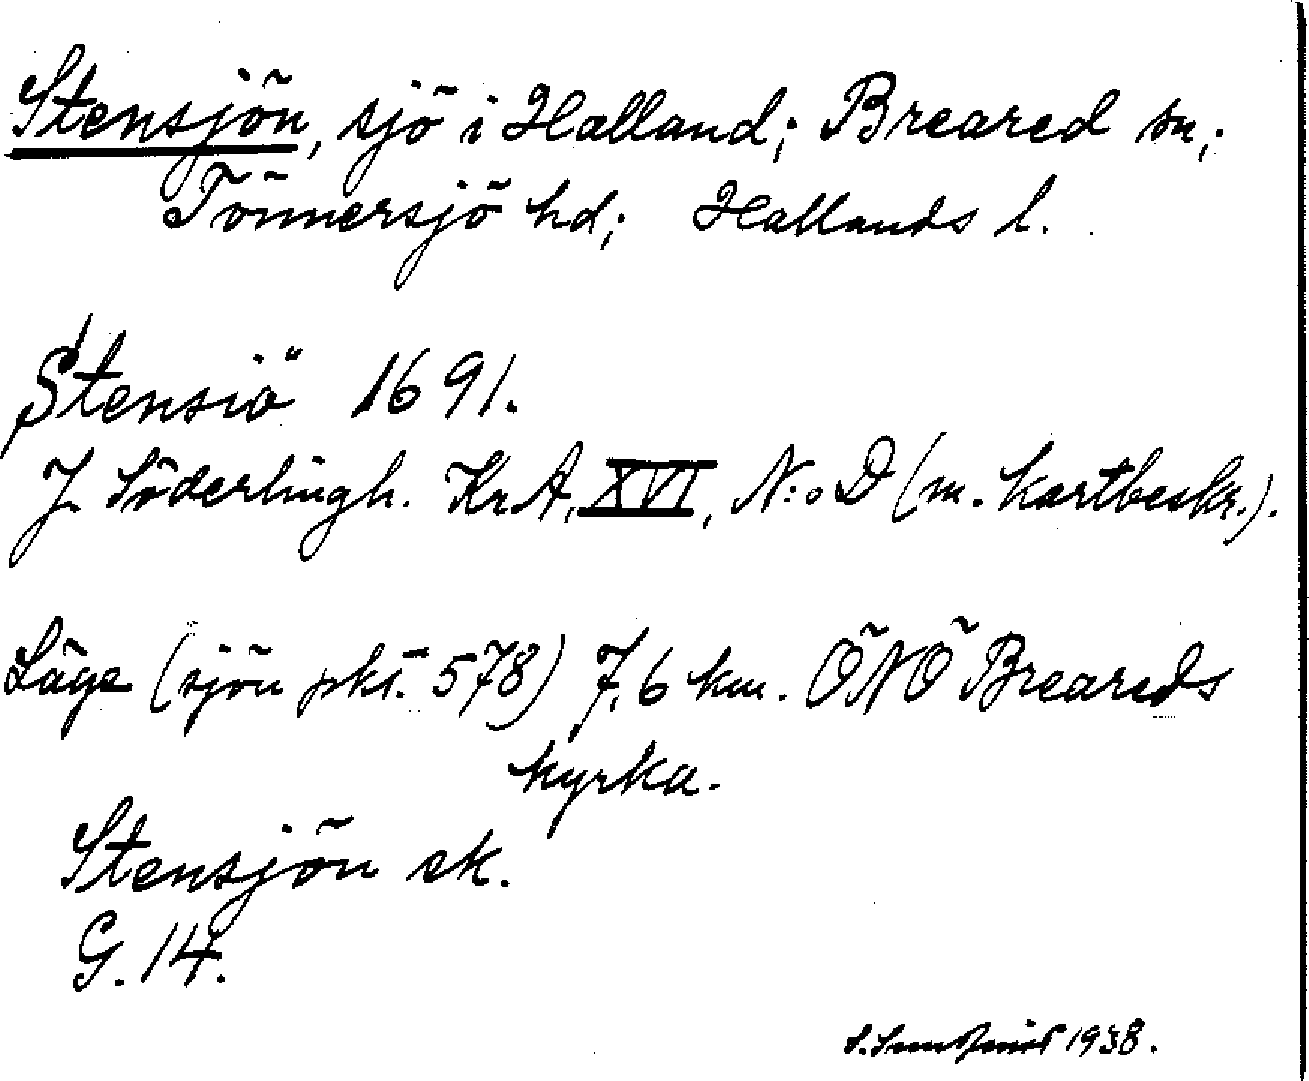 Stensjön, sjö i Halland; Breared sn;
Tönnersjö hd; Hallands l.
Stensiö 1691.
J. Söderlingh. Kr.A, XVI, N:o D (m. kartbeskr.).
Läge (sjön pkt. 578) 7,6 km. ÖNÖ Breareds
kyrka.
Stensjön ek.
G. 14.
1938.